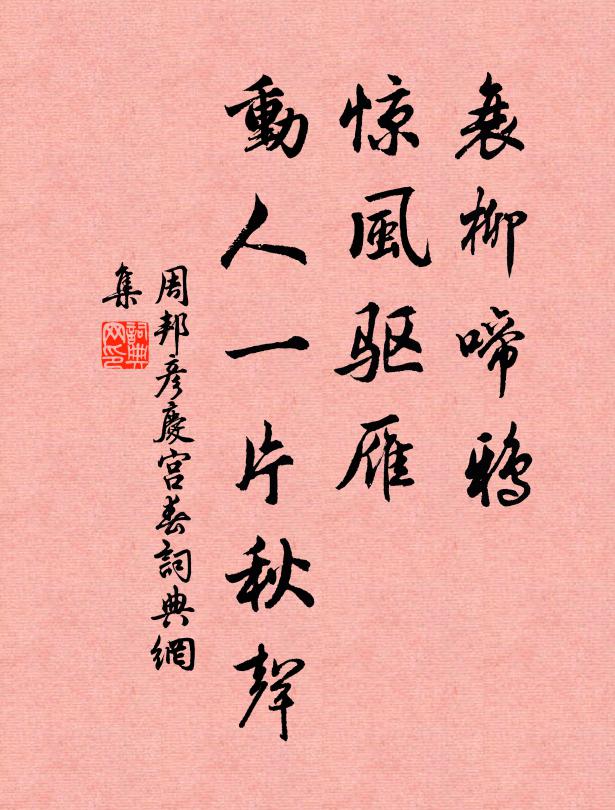 衰柳啼鸦
惊風驱雁
動人一片秋聲
周邦彦慶宫春詞典網
集
詞典网印